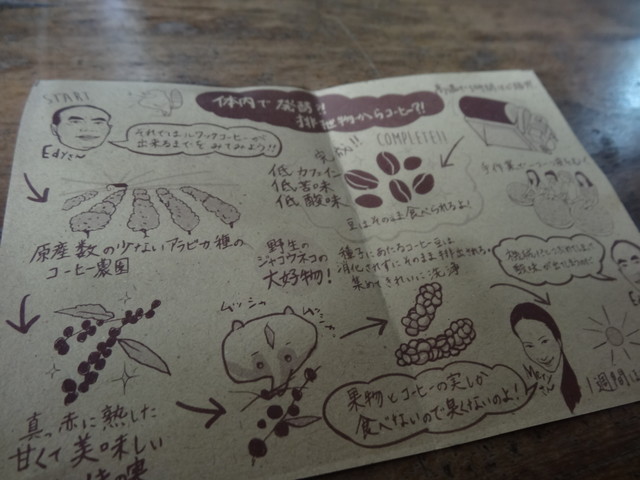 START
体内で発酵!!
排泄物からコーヒー?!
Edy's~
それではルアックコーヒーが
出来るまでをみてみよう!!
COMPLETE!!
低カフェイン
低苦味
低酸味
豆はそのまま食べられるよ!
原産数の少ないアラビカ種の
コーヒー農園
野生の
ジャコウネコの
大好物!
種子にあたるコーヒー豆は
消化されずにそのまま排出される。
集めてきれいに洗浄
ムッシャ
ムッシャ
真っ赤に熟した
甘くて美味しい
の実
果物とコーヒーの実しか
食べないので臭くないのよ!
1週間